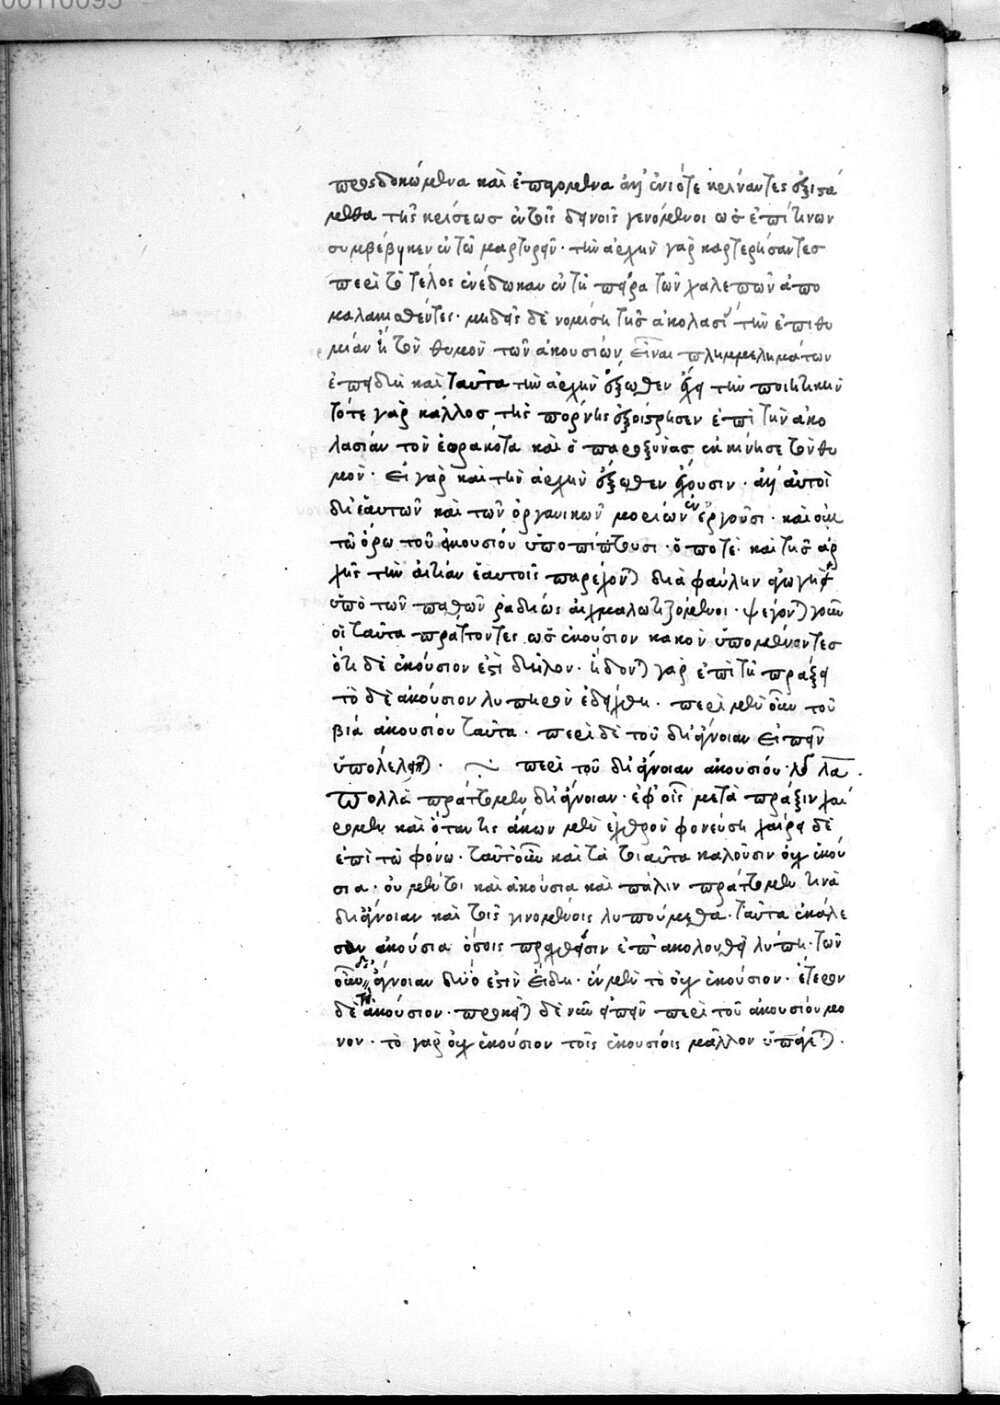 προσδοκώμενα καὶ ἐπαγόμενα ἀλλ' ἐνίοτε κρίναντες ἐξιστά
μεθα τῆς κρίσεως ἐν τοῖς δεινοῖς γενόμενοι ὡς ἐπί τινων
συμβέβηκεν ἐν τῶ μαρτυρεῖν· τὴν ἀρχὴν γὰρ καρτερήσαντες
περὶ τὸ τέλος ἐνέδωκαν ἐν τῆ πείρα τῶν χαλεπῶν ἀπο
μαλακισθέντες· μηδεὶς δὲ νομίση τῆς ἀκολασί τὴν ἐπιθυ
μίαν ἢ τὸν θυμὸν τῶν ἀκουσίων εἶναι πλημμελημάτων
ἐπειδὴ καὶ ταῦτα τὴν ἀρχὴν ἔξωθεν ἔχει τὴν ποιητικήν
τότε γὰρ κάλλος τῆς πόρνης ἐξοίστρησεν ἐπὶ τὴν ἀκο
λασίαν τὸν ἑωρακότα καὶ ὁ παροξύνας ἐκίνησε τὸν θυ
μόν· εἰ γὰρ καὶ τὴν ἀρχὴν ἔξωθεν ἔχουσιν· ἀλλ' αὐτοὶ
δι' ἑαυτῶν καὶ τῶν ὀργανικῶν μορίων ἐνεργοῦσι· καὶ οὐ
τῶ ὅρω τοῦ ἀκουσίου ὑποπίπτουσι· ὁπότε καὶ τῆς ἀρ
χῆς τὴν αἰτίαν ἑαυτοῖς παρέχονται διὰ φαύλην ἀγωγὴν
ὑπὸ τῶν παθῶν ῥαδίως αἰχμαλωτιζόμενοι· ψέγονται γοῦν
οἱ ταῦτα πράττοντες ὡς ἑκούσιον κακὸν ὑπομένοντες
ὅτι δὲ ἑκούσιον ἐστὶ δῆλον· ἥδονται γὰρ ἐπὶ τῆ πράξει
τὸ δὲ ἀκούσιον λυπηρὸν ἐδείχθη· περὶ μὲν οὖν τοῦ
βία ἀκουσίου ταῦτα· περὶ δὲ τοῦ δι' ἄγνοιαν εἰπεῖν
ὑπολείπεται· περὶ τοῦ δι' ἄγνοιαν ἀκουσίου λδ λα.
Πολλὰ πράττομεν δι' ἄγνοιαν· ἐφ' οἷς μετὰ πρᾶξιν χαί
ρομεν καὶ ὅταν τις ἄκων μὲν ἐχθρὸν φονεύση χαίρει δὲ
ἐπὶ τῶ φόνω· ταῦτ' οὖν καὶ τὰ τοιαῦτα καλοῦσιν οὐχ ἑκού
σια· οὐ μέντοι καὶ ἀκούσια καὶ πάλιν πράττομέν τινα
δι' ἄγνοιαν καὶ τοῖς γινομένοις λυπούμεθα· ταῦτα ἐκάλε
σαν ἀκούσια ὅσοις πραχθεῖσιν ἐπακολουθεῖ λύπη· τῶν
οὖν δι' ἄγνοιαν δύο ἐστὶν εἴδη· ἓν μὲν τὸ οὐχ ἑκούσιον· ἕτερον
δὲ τὸ ἀκούσιον· πρόκειται δὲ νῦν εἰπεῖν περὶ τοῦ ἀκουσίου μό
νον· τὸ γὰρ οὐχ ἑκούσιον τοῖς ἑκουσίοις μᾶλλον ὑπάγεται.